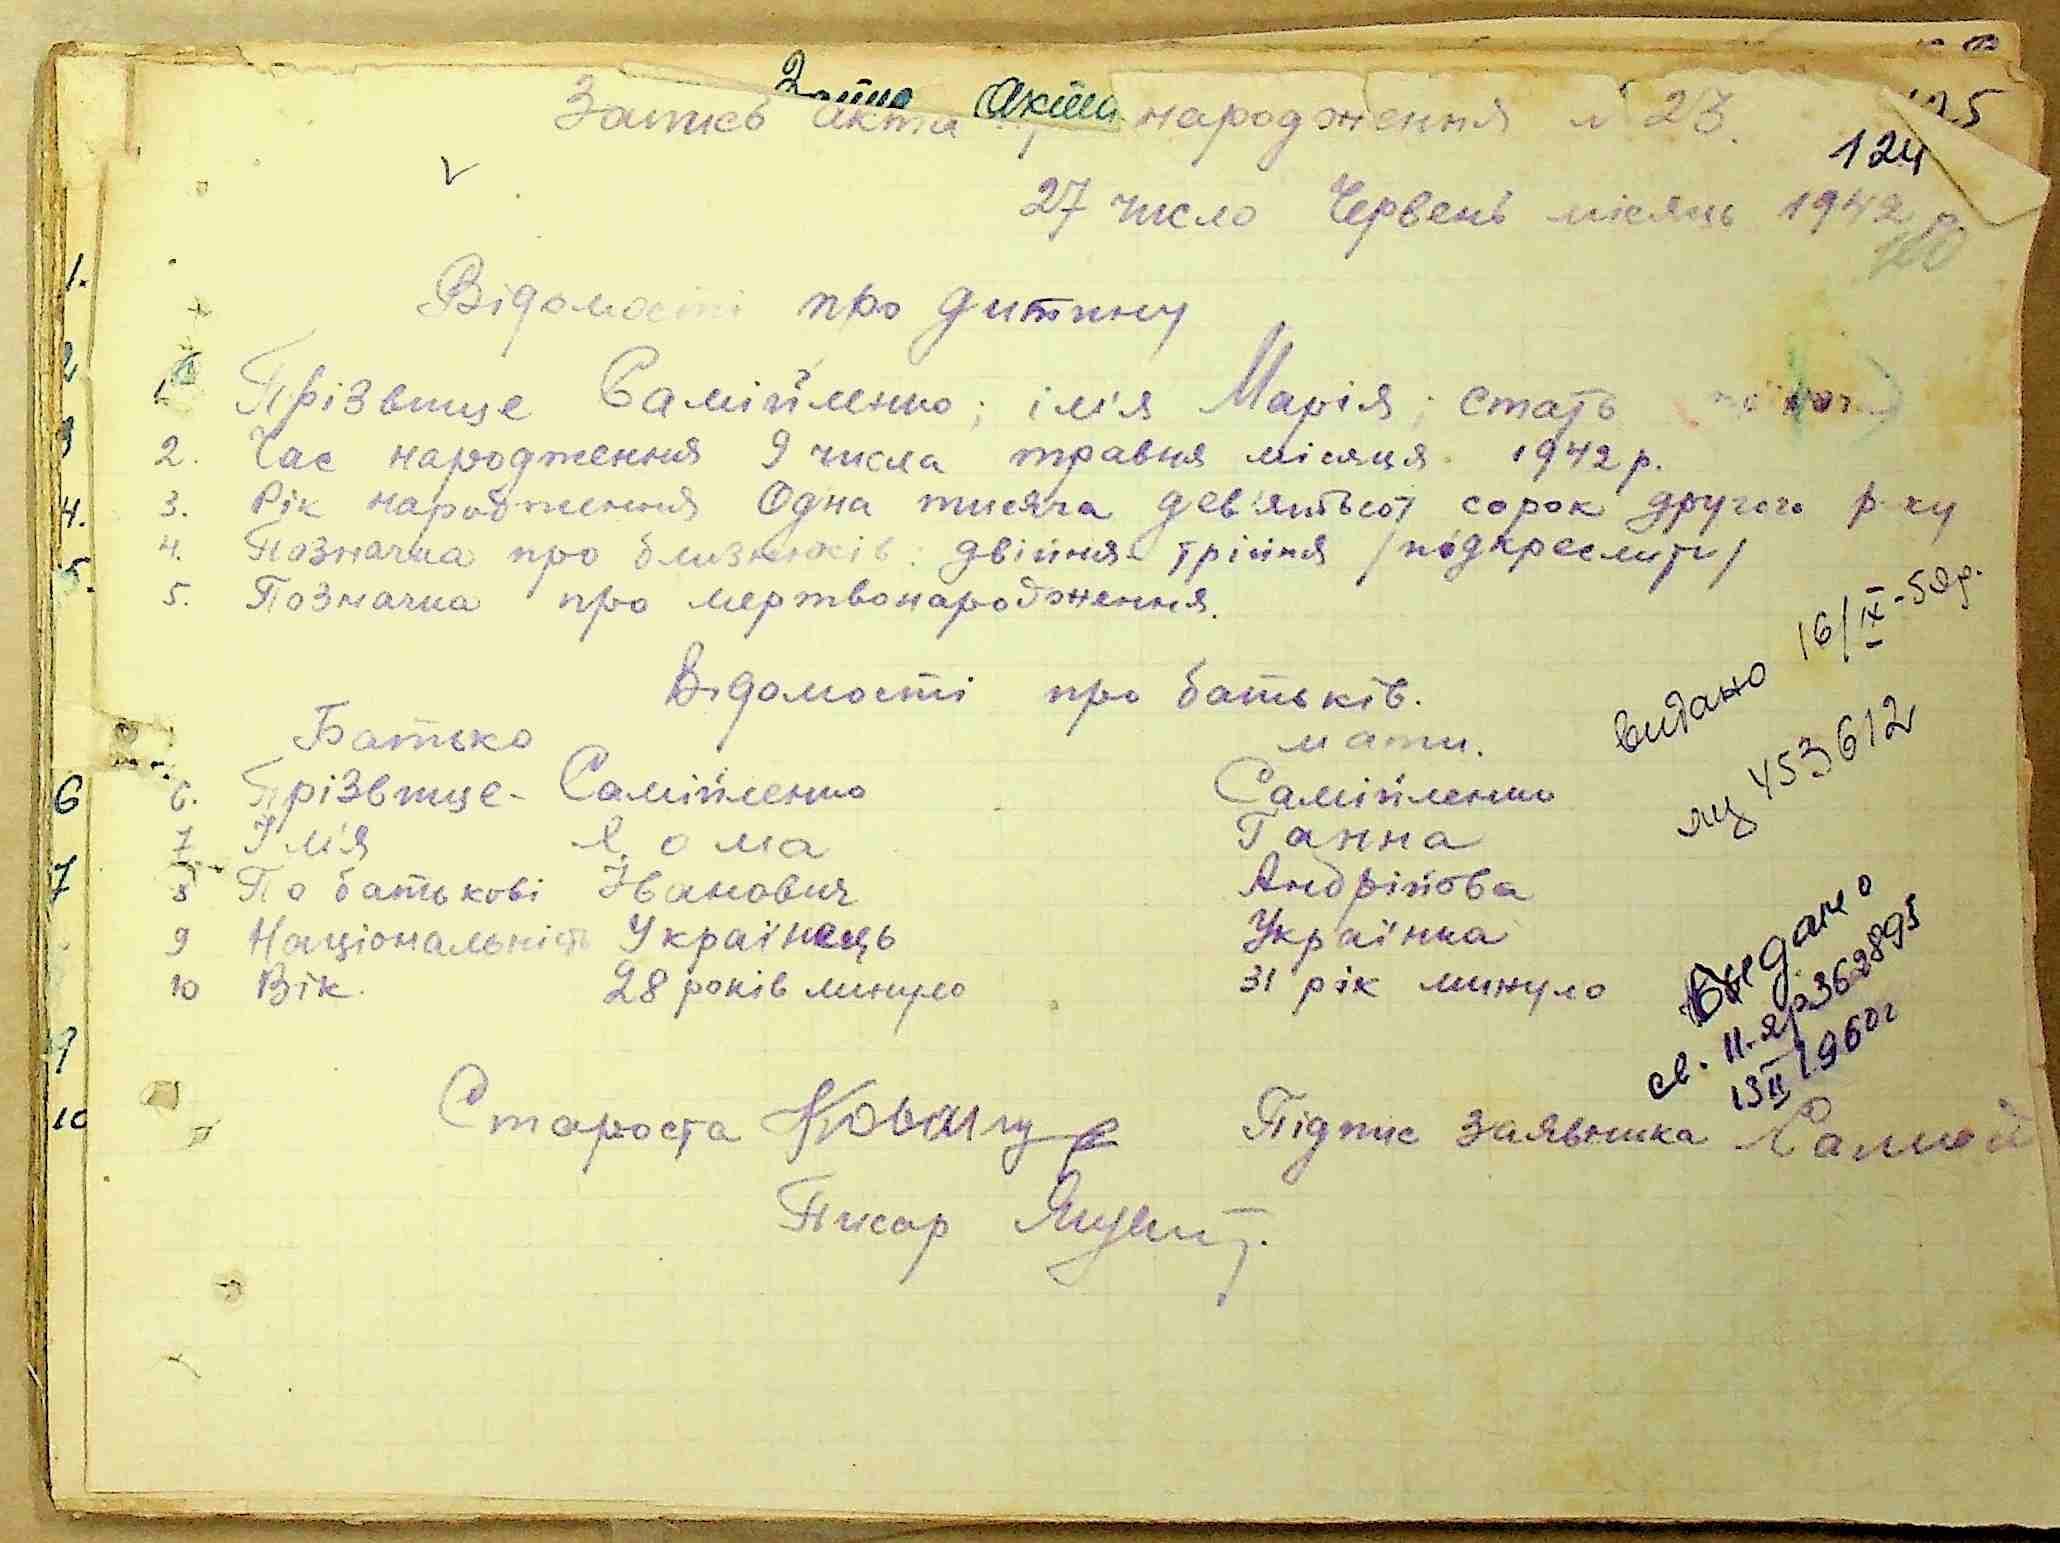 Запис акта народження № 23.
124
27 число Червень місяць 1942 р.
Відомості про дитину
1. Прізвище Самійленко; ім'я Марія; стать
2. Час народження 9 числа травня місяця 1942 р.
3. Рік народження Одна тисяча дев'ятьсот сорок другого р-ку
4. Позначка про близнюків: двійня - трійня /підкреслити/
5. Позначка про мертвонародження.
Відомості про батьків.
Батько мати.
6. Прізвище - Самійленко Самійленко
7 Ім'я Хома Ганна
8 По батькові Іванович Андріївна
9 Національність Українець Українка
10 Вік. 28 років минуло 31 рік минуло
Староста Підпис заявника
Писар
видано 16/IX-59р.
яц 453612
Видано
св. II-яр 362895
13 II 1960г